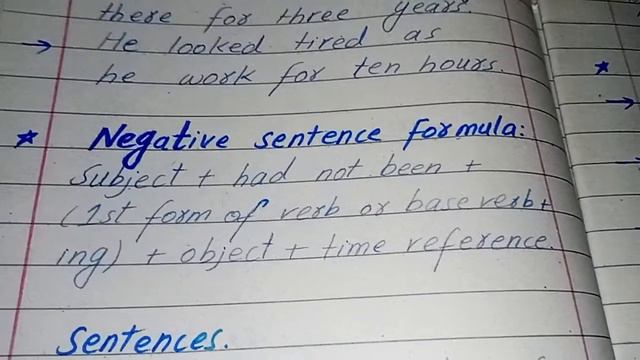 there for three years.
→ He looked tired as
he work for ten hours.
★ Negative sentence formula:
Subject + had not been +
(1st form of verb or base verb +
ing) + object + time reference.
Sentences.